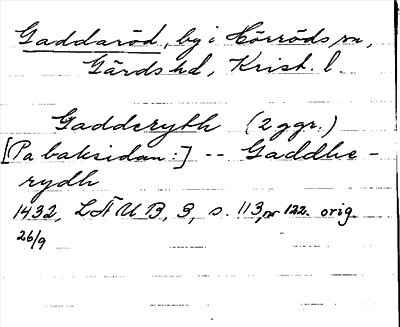 Gaddaröd, by i Hörröds sn,
Gärds hd, Krist. l.
Gadderyth (2 ggr.)
[På baksidan:] -- Gaddhe-
rydh
1432, LÄUB, 3, s. 113, nr 122. orig.
26/9